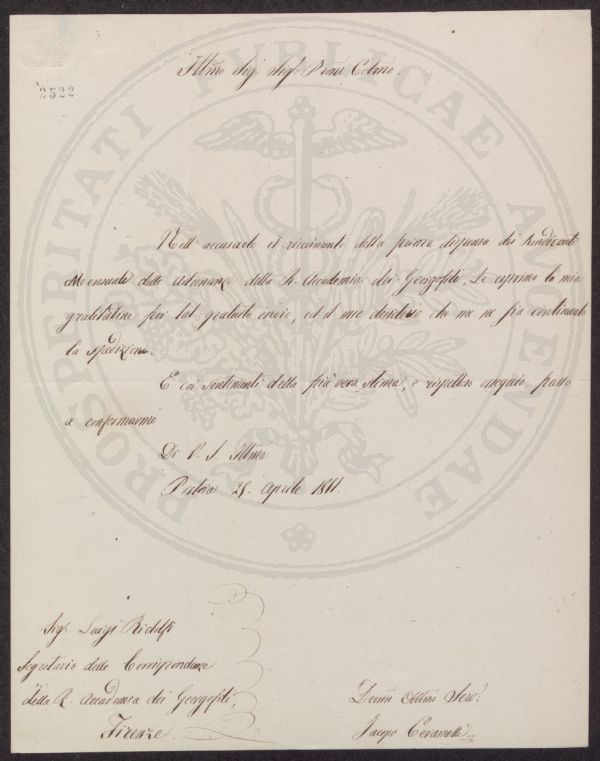 Illmo Sig. Sig. Pron Colmo.
2522
PROSPERITATI PUBLICAE AUGENDAE
Nell' accusarle il ricevimento della prima dispensa dei Rendiconti
Mensuali delle Adunanze della R. Accademia dei Georgofili, Le esprimo la mia
gratitudine per tal gratuito invio, ed il mio desiderio che me ne sia continuata
la spedizione.
E coi sentimenti della più vera stima, e rispettoso ossequio, passo
a confermarmi
Di V. S. Illma
25. Aprile
Sig. Luigi Ridolfi
Segretario delle Corrispondenze
della R. Accademia dei Georgofili,
Firenze.
Devmo Obblmo Serv.
Jacopo